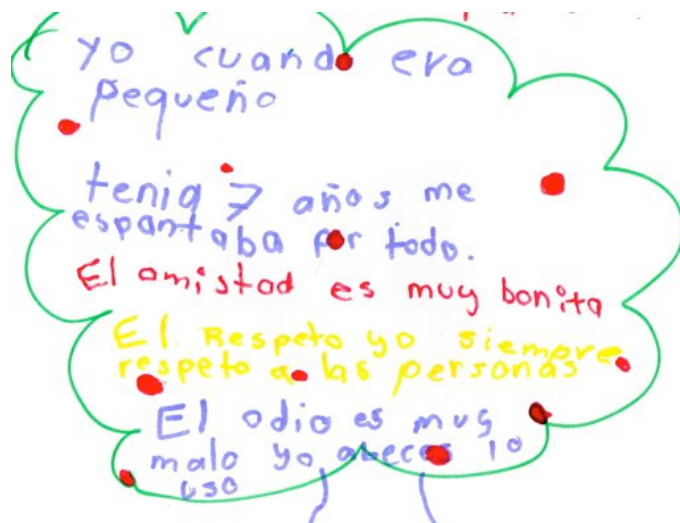 yo cuando era
pequeño
tenia 7 años me
espantaba por todo.
El amistad es muy bonita
El Respeto yo siempre
respeto a las personas
El odio es muy
malo yo aveces lo
uso